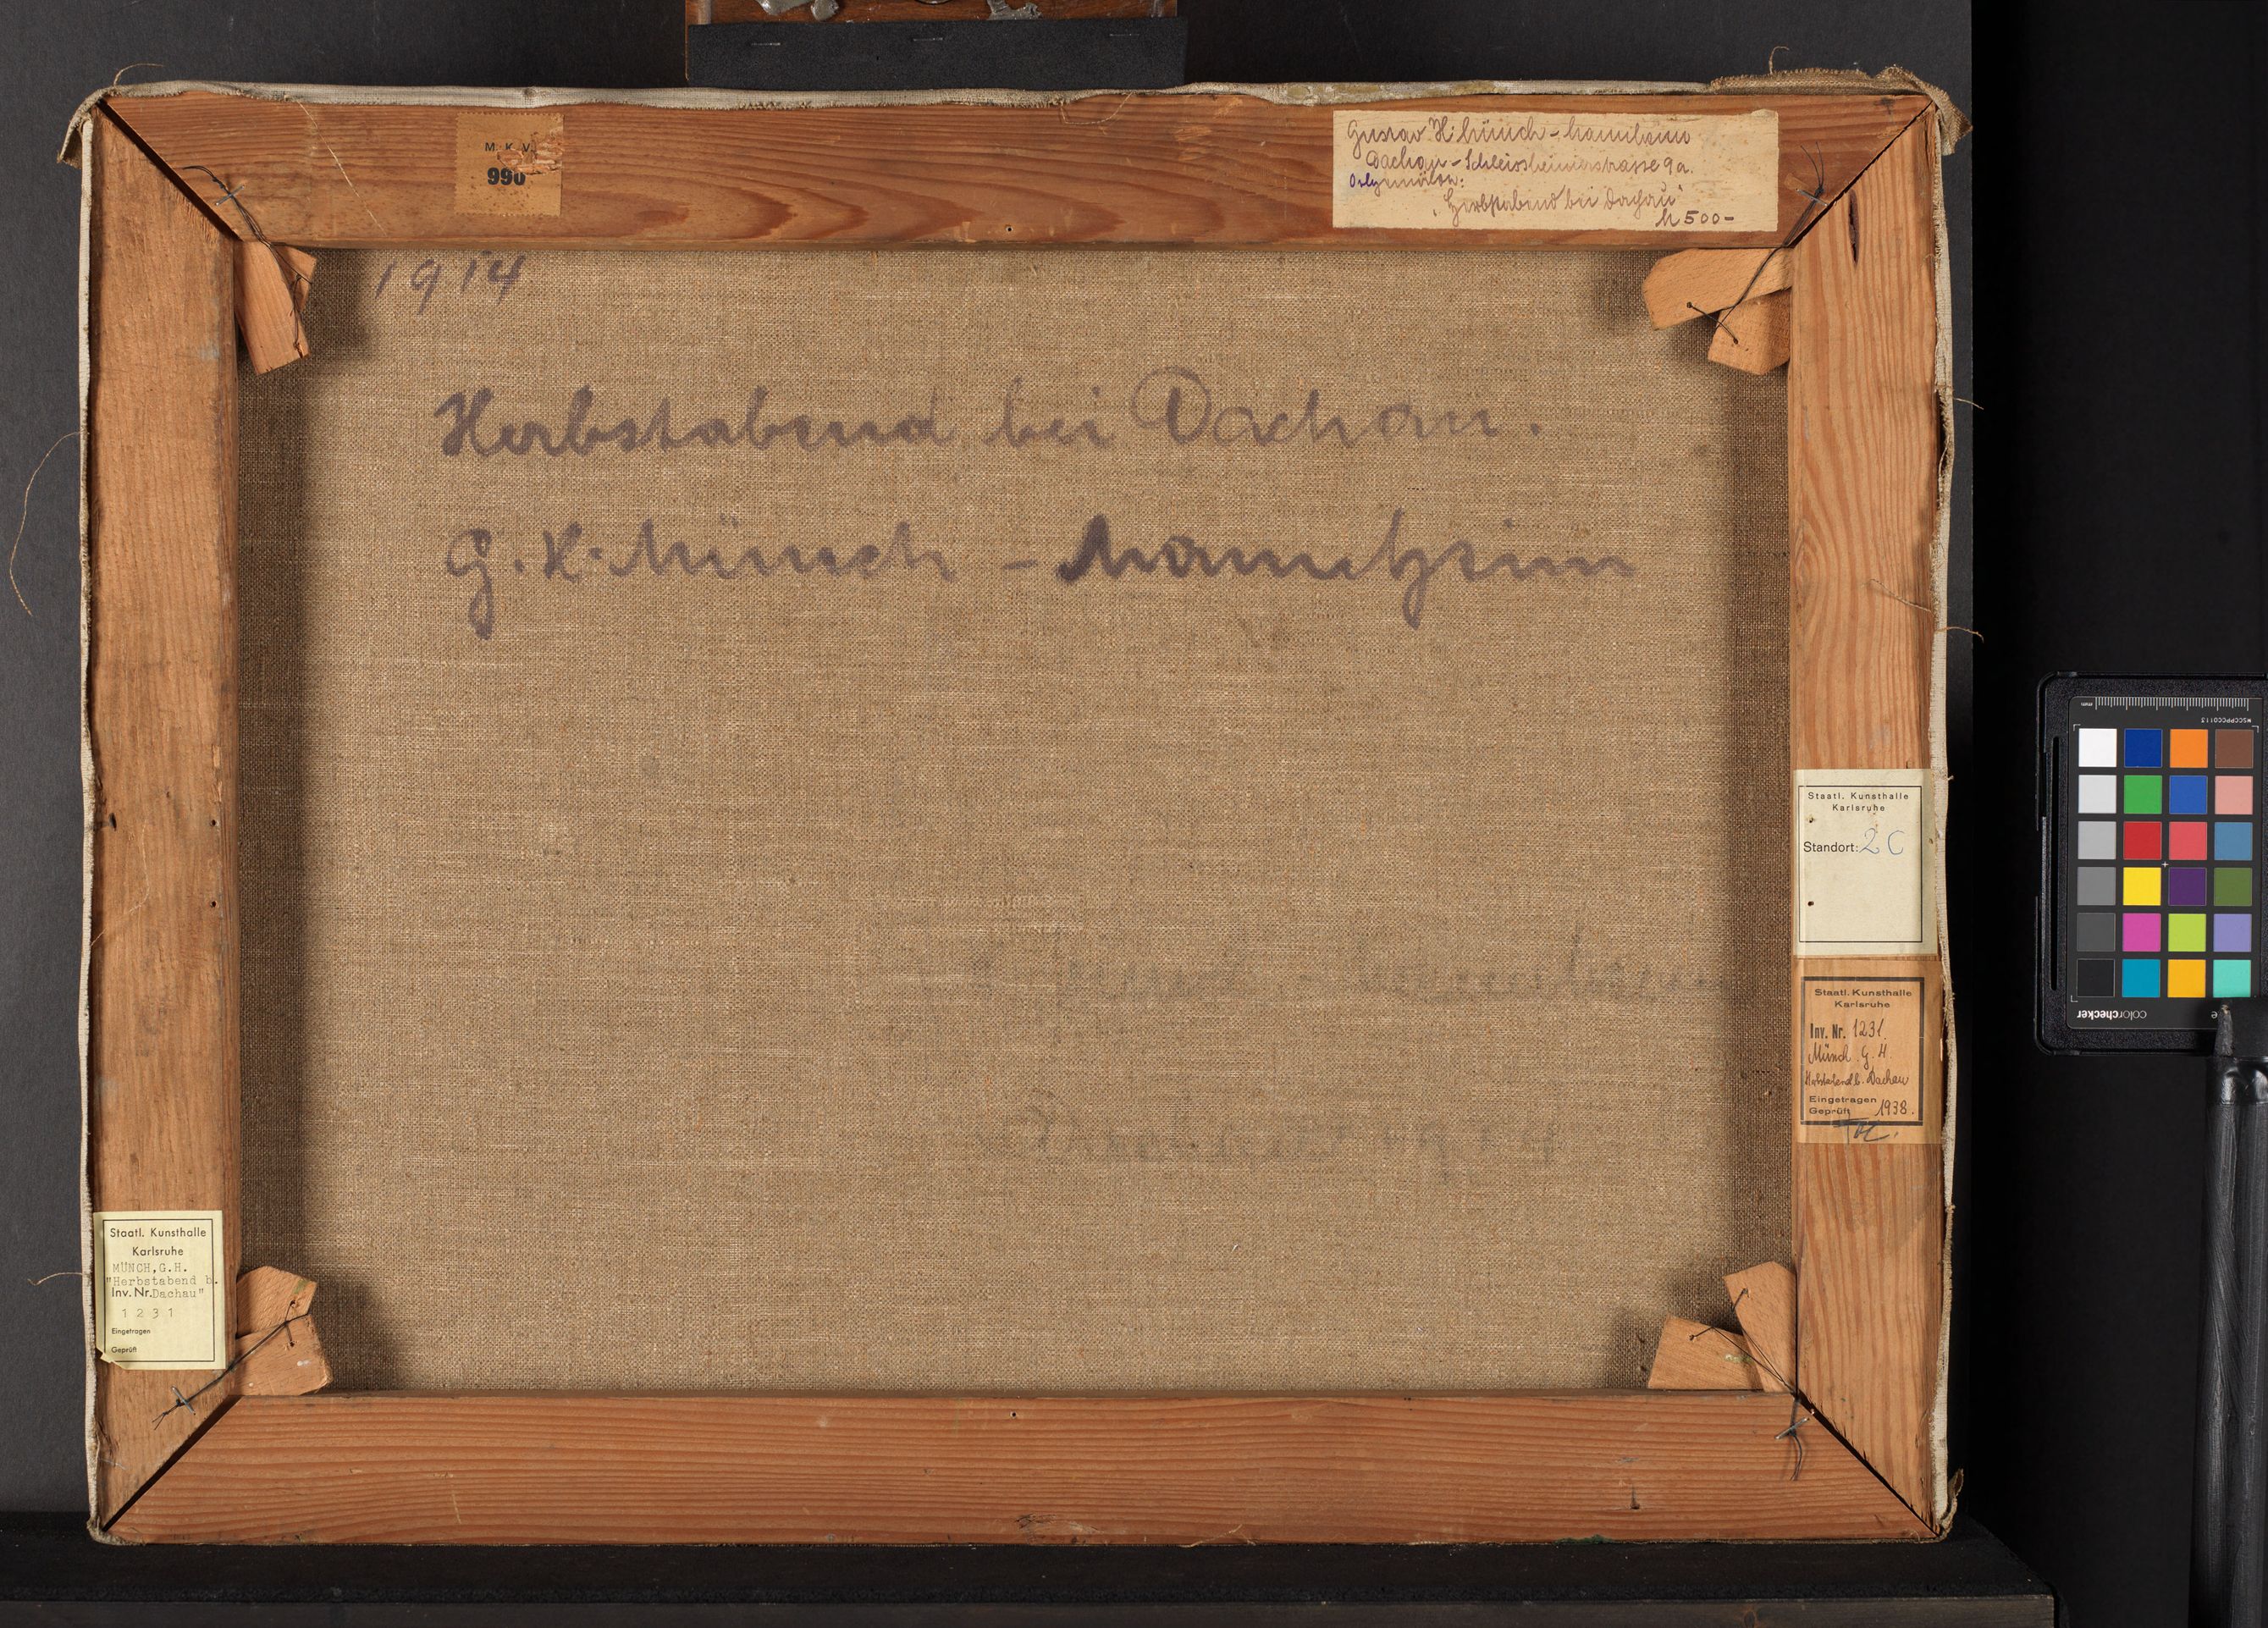 M. K. V.
990
Gustav H. Münch-Mannheim
Dachau - Schleissheimerstrasse 9a.
Ölgemälde:
"Herbstabend bei Dachau"
M 500-
1914
Herbstabend bei Dachau.
G. H. Münch - Mannheim
Staatl. Kunsthalle
Karlsruhe
Standort: 2 C
Staatl. Kunsthalle
Karlsruhe
Inv. Nr. 1231.
Münch G. H.
Herbstabend b. Dachau
Eingetragen
Geprüft 1938.
Staatl. Kunsthalle
Karlsruhe
MÜNCH,G.H.
"Herbstabend b.
Inv. Nr. Dachau"
1 2 3 1
Eingetragen
Geprüft
mm
MSCCPPCC0113
colorchecker